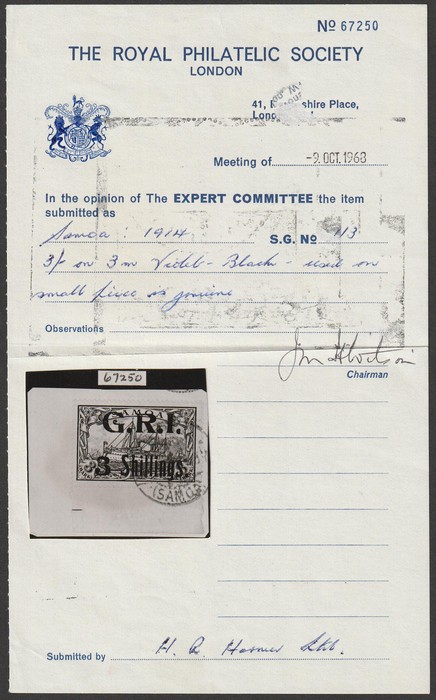 No 67250
THE ROYAL PHILATELIC SOCIETY
LONDON
41, shire Place,
Meeting of -9. OCT. 1968
In the opinion of The EXPERT COMMITTEE the item
submitted as
Samoa : 1914 S.G. No 113
3/- on 3m Violet-Black - used on
small piece is genuine
Observations
Chairman
67250
SAMOA
G.R.I.
3 Shillings.
(SAMOA
Submitted by H. R. Harmer Ltd.